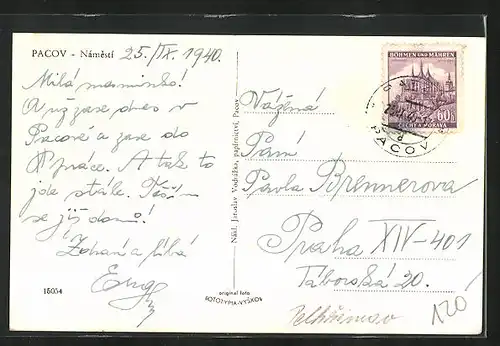 PACOV - Náměstí 25./IX. 1940.
Milá maminko!
A už zase dnes v
Pacově a zase do
práce. A tak to
jde stále. Těším
se již domů!
Zdraví a líbá
15054
Nákl. Jaroslav Vodrážka, papírnictví, Pacov.
original foto
FOTOTYPIA-VYŠKOV
BÖHMEN UND MÄHREN
60h
ČECHY A MORAVA
PACOV
Vážená
Paní
Pavla Brennerova
Praha XIV-401
Táborská 20.
Pelhřimov
120